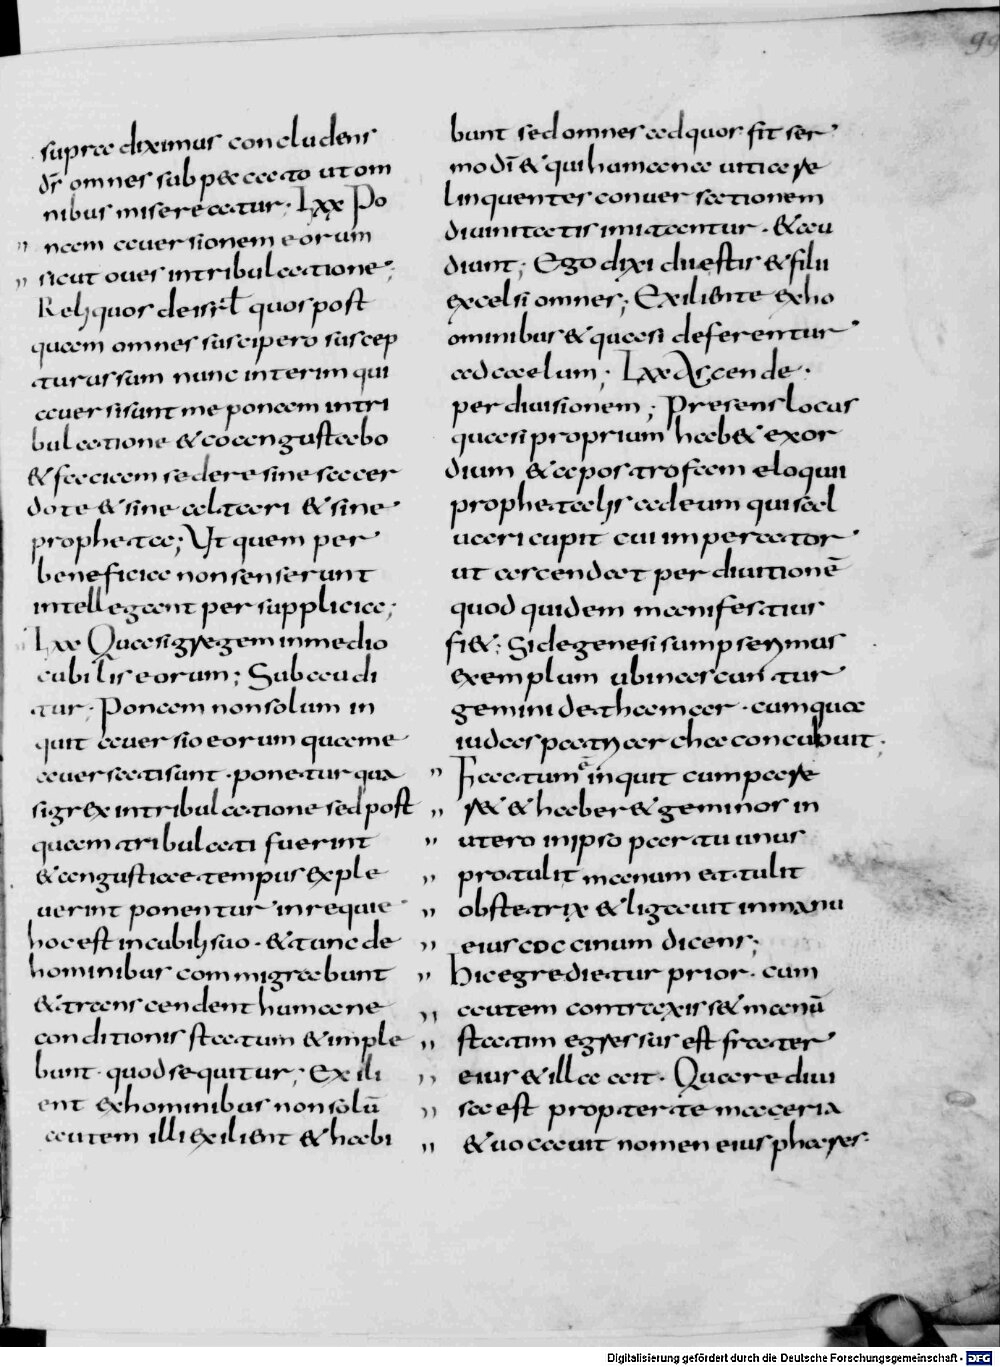 99
supra diximus concludens
ds̄ omnes sub peccato ut om
nibus misereatur· Lxx Po
nam auersionem eorum
sicut oues in tribulatione;
Reliquos de isrl̄ quos post
quam omnes suscipero suscep
turus sum nunc interim qui
auersi sunt me ponam in tri
bulatione & coangustabo
& faciam sedere sine sacer
dote & sine altari & sine
propheta; Ut quem per
beneficia non senserunt
intellegant per supplicia;
Lxx Quasi gregem in medio
cubilis eorum; Subaudi
tur; Ponam non solum in
quit auersio eorum qua me
auersati sunt· ponetur qua
si grex in tribulatione sed post
quam tribulati fuerint
& angustiae tempus exple
uerint ponentur in requie
hoc est in cubili suo· & tunc de
hominibus commigrabunt
& transcendent humane
conditionis statum & imple
bunt· quod sequitur; Exili
ent ex hominibus non solū
autem illi exilient & habi
bunt sed omnes ad quos fit ser
mo dī & qui humana uitia re
linquentes conuersationem
diuinitatis imitantur· & au
diunt; Ego dixi dii estis & filii
excelsi omnes; Exilient ex ho
minibus & quasi deferentur
ad caelum; Lxx Ascende·
per diuisionem; Presens locus
quasi proprium hab& exor
dium & apostrofam eloquii
prophetalis ad eum qui sal
uari cupit cui imperator
ut ascendat per diuitionē
quod quidem manifestius
fi&; Si de genesi sumpserimus
exemplum ubi nascuntur
gemini de thamar· cum qua
iudas patriarcha concubuit;
Factum ē inquit cum pare
r& & haber& geminos in
utero in ipso partu unus
protulit manum et tulit
obstetrix & ligauit in manu
eius coccinum dicens;
hic egredietur prior· cum
autem contraxiss& manū
statim egressus est frater
eius & illa ait· Quare diui
sa est propter te maceria
& uocauit nomen eius phares·
Digitalisierung gefördert durch die Deutsche Forschungsgemeinschaft - DFG